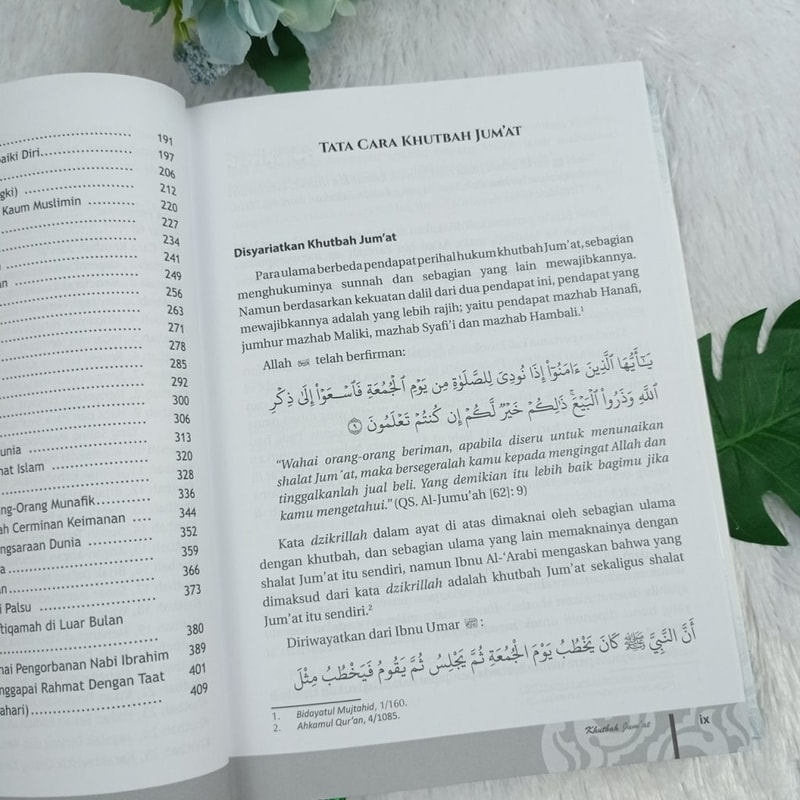 191
aiki Diri 197
206
gki) 212
Kaum Muslimin 220
227
234
241
an 249
256
263
271
278
285
292
300
306
unia 313
nat Islam 320
328
ng-Orang Munafik 336
ah Cerminan Keimanan 344
ngsaraan Dunia 352
a 359
an 366
i Palsu 373
tiqamah di Luar Bulan
380
nai Pengorbanan Nabi Ibrahim 389
nggapai Rahmat Dengan Taat 401
ahari) 409
TATA CARA KHUTBAH JUM'AT
Disyariatkan Khutbah Jum'at
Para ulama berbeda pendapat perihal hukum khutbah Jum'at, sebagian
menghukuminya sunnah dan sebagian yang lain mewajibkannya.
Namun berdasarkan kekuatan dalil dari dua pendapat ini, pendapat yang
mewajibkannya adalah yang lebih rajih; yaitu pendapat mazhab Hanafi,
jumhur mazhab Maliki, mazhab Syafi'i dan mazhab Hambali.¹
Allah telah berfirman:
يَٰٓأَيُّهَا ٱلَّذِينَ ءَامَنُوٓا۟ إِذَا نُودِىَ لِلصَّلَوٰةِ مِن يَوْمِ ٱلْجُمُعَةِ فَٱسْعَوْا۟ إِلَىٰ ذِكْرِ
ٱللَّهِ وَذَرُوا۟ ٱلْبَيْعَ ۚ ذَٰلِكُمْ خَيْرٌ لَّكُمْ إِن كُنتُمْ تَعْلَمُونَ ٩
"Wahai orang-orang beriman, apabila diseru untuk menunaikan
shalat Jum´at, maka bersegeralah kamu kepada mengingat Allah dan
tinggalkanlah jual beli. Yang demikian itu lebih baik bagimu jika
kamu mengetahui." (QS. Al-Jumu'ah [62]: 9)
Kata dzikrillah dalam ayat di atas dimaknai oleh sebagian ulama
dengan khutbah, dan sebagian ulama yang lain memaknainya dengan
shalat Jum'at itu sendiri, namun Ibnu Al-'Arabi mengaskan bahwa yang
dimaksud dari kata dzikrillah adalah khutbah Jum'at sekaligus shalat
Jum'at itu sendiri.²
Diriwayatkan dari Ibnu Umar :
أَنَّ النَّبِيَّ ﷺ كَانَ يَخْطُبُ يَوْمَ الْجُمُعَةِ ثُمَّ يَجْلِسُ ثُمَّ يَقُومُ فَيَخْطُبُ مِثْلَ
1. Bidayatul Mujtahid, 1/160.
2. Ahkamul Qur'an, 4/1085.
Khutbah Jum'at ix